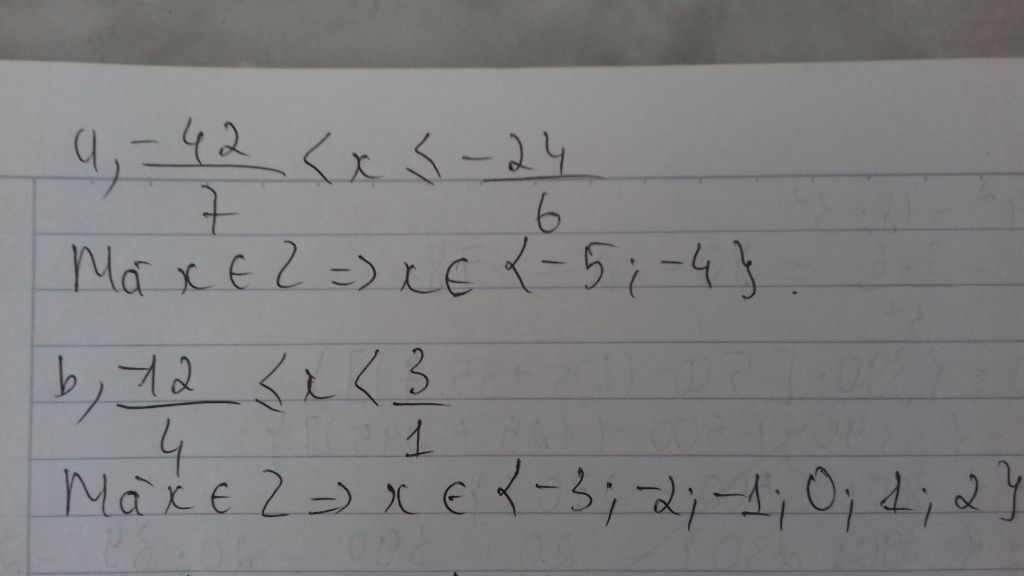 a, -42/7 < x ≤ -24/6
Mà x ∈ Z => x ∈ {-5; -4}.
b, -12/4 ≤ x < 3/1
Mà x ∈ Z => x ∈ {-3; -2; -1; 0; 1; 2}